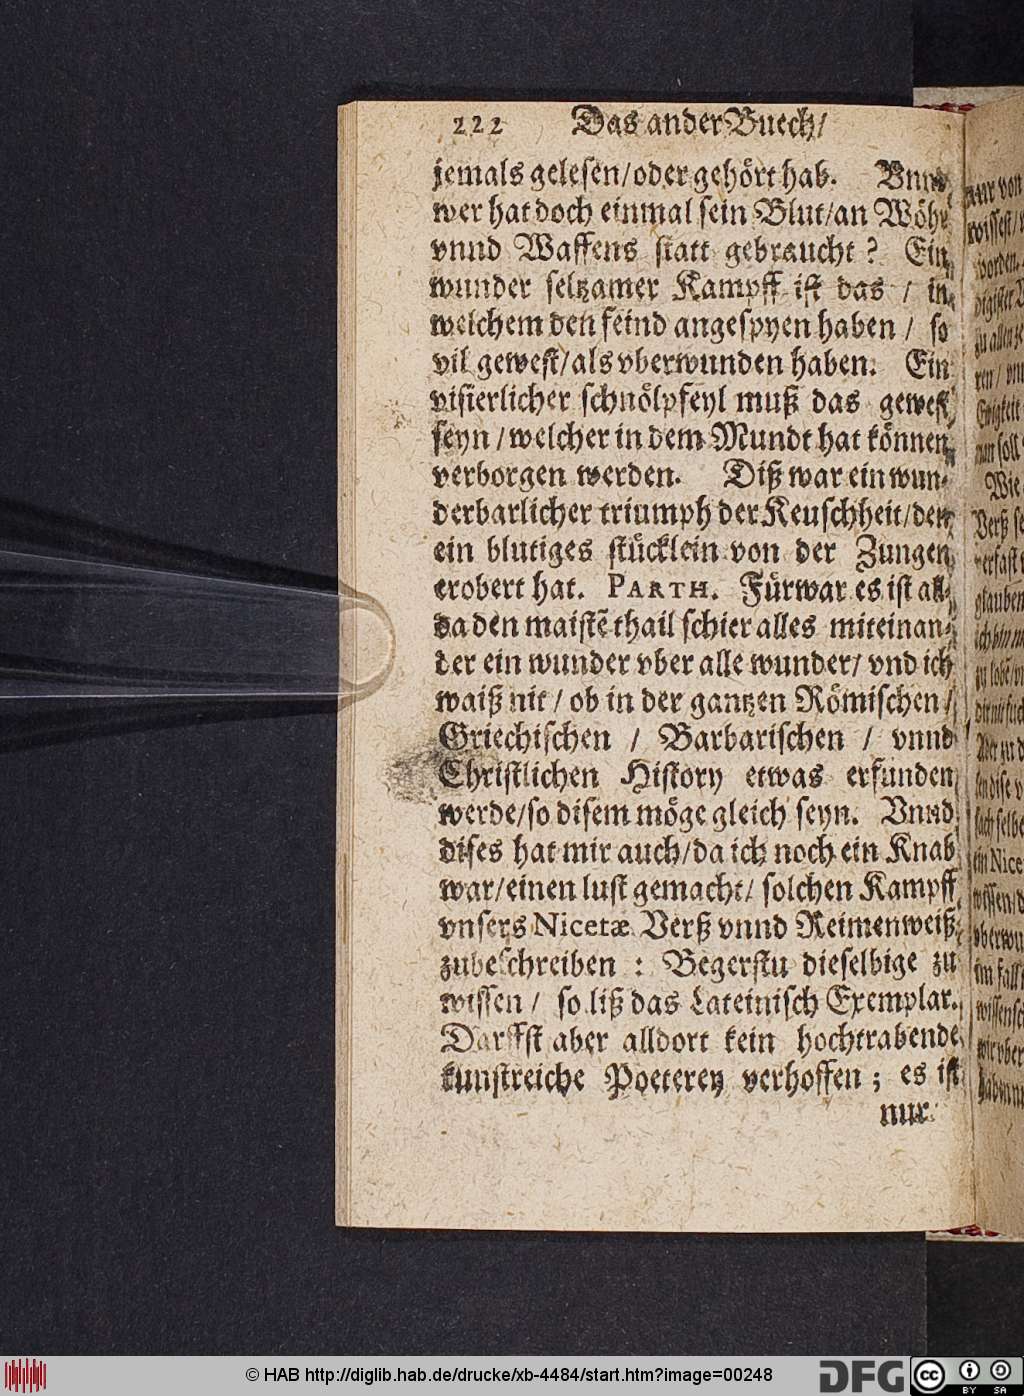 222 Das ander Buech/
jemals gelesen/oder gehört hab. Vnnd
wer hat doch einmal sein Blut/an Wöhr
vnnd Waffens statt gebraucht? Ein
wunder seltzamer Kampff ist das / in
welchem den feind angespyen haben / so
vil gewest/als vberwunden haben. Ein
visierlicher schnölpfeyl muß das gewest
seyn / welcher in dem Mundt hat können
verborgen werden. Diß war ein wun-
derbarlicher triumph der Keuschheit/den
ein blutiges stücklein von der Zungen
erobert hat. PARTH. Fürwar es ist all-
da den maistē thail schier alles miteinan-
der ein wunder vber alle wunder/ vnd ich
waiß nit / ob in der gantzen Römischen /
Griechischen / Barbarischen / vnnd
Christlichen History etwas erfunden
werde/so disem möge gleich seyn. Vnnd
dises hat mir auch/da ich noch ein Knab
war/einen lust gemacht/ solchen Kampff
vnsers Nicetæ Verß vnnd Reimenweiß
zubeschreiben : Begerstu dieselbige zu
wissen / so liß das Lateinisch Exemplar.
Darffst aber alldort kein hochtrabende
kunstreiche Poeterey verhoffen; es ist
nur
nur von
wissest/
worden.
zu allen
Ewigkeit
man soll
Wie
Verß
glauben
ich bin
zu lobē
Aber zu
dise
selbe
in Nice
wissen/
vberwu
im fall
© HAB http://diglib.hab.de/drucke/xb-4484/start.htm?image=00248
DFG
cc BY SA